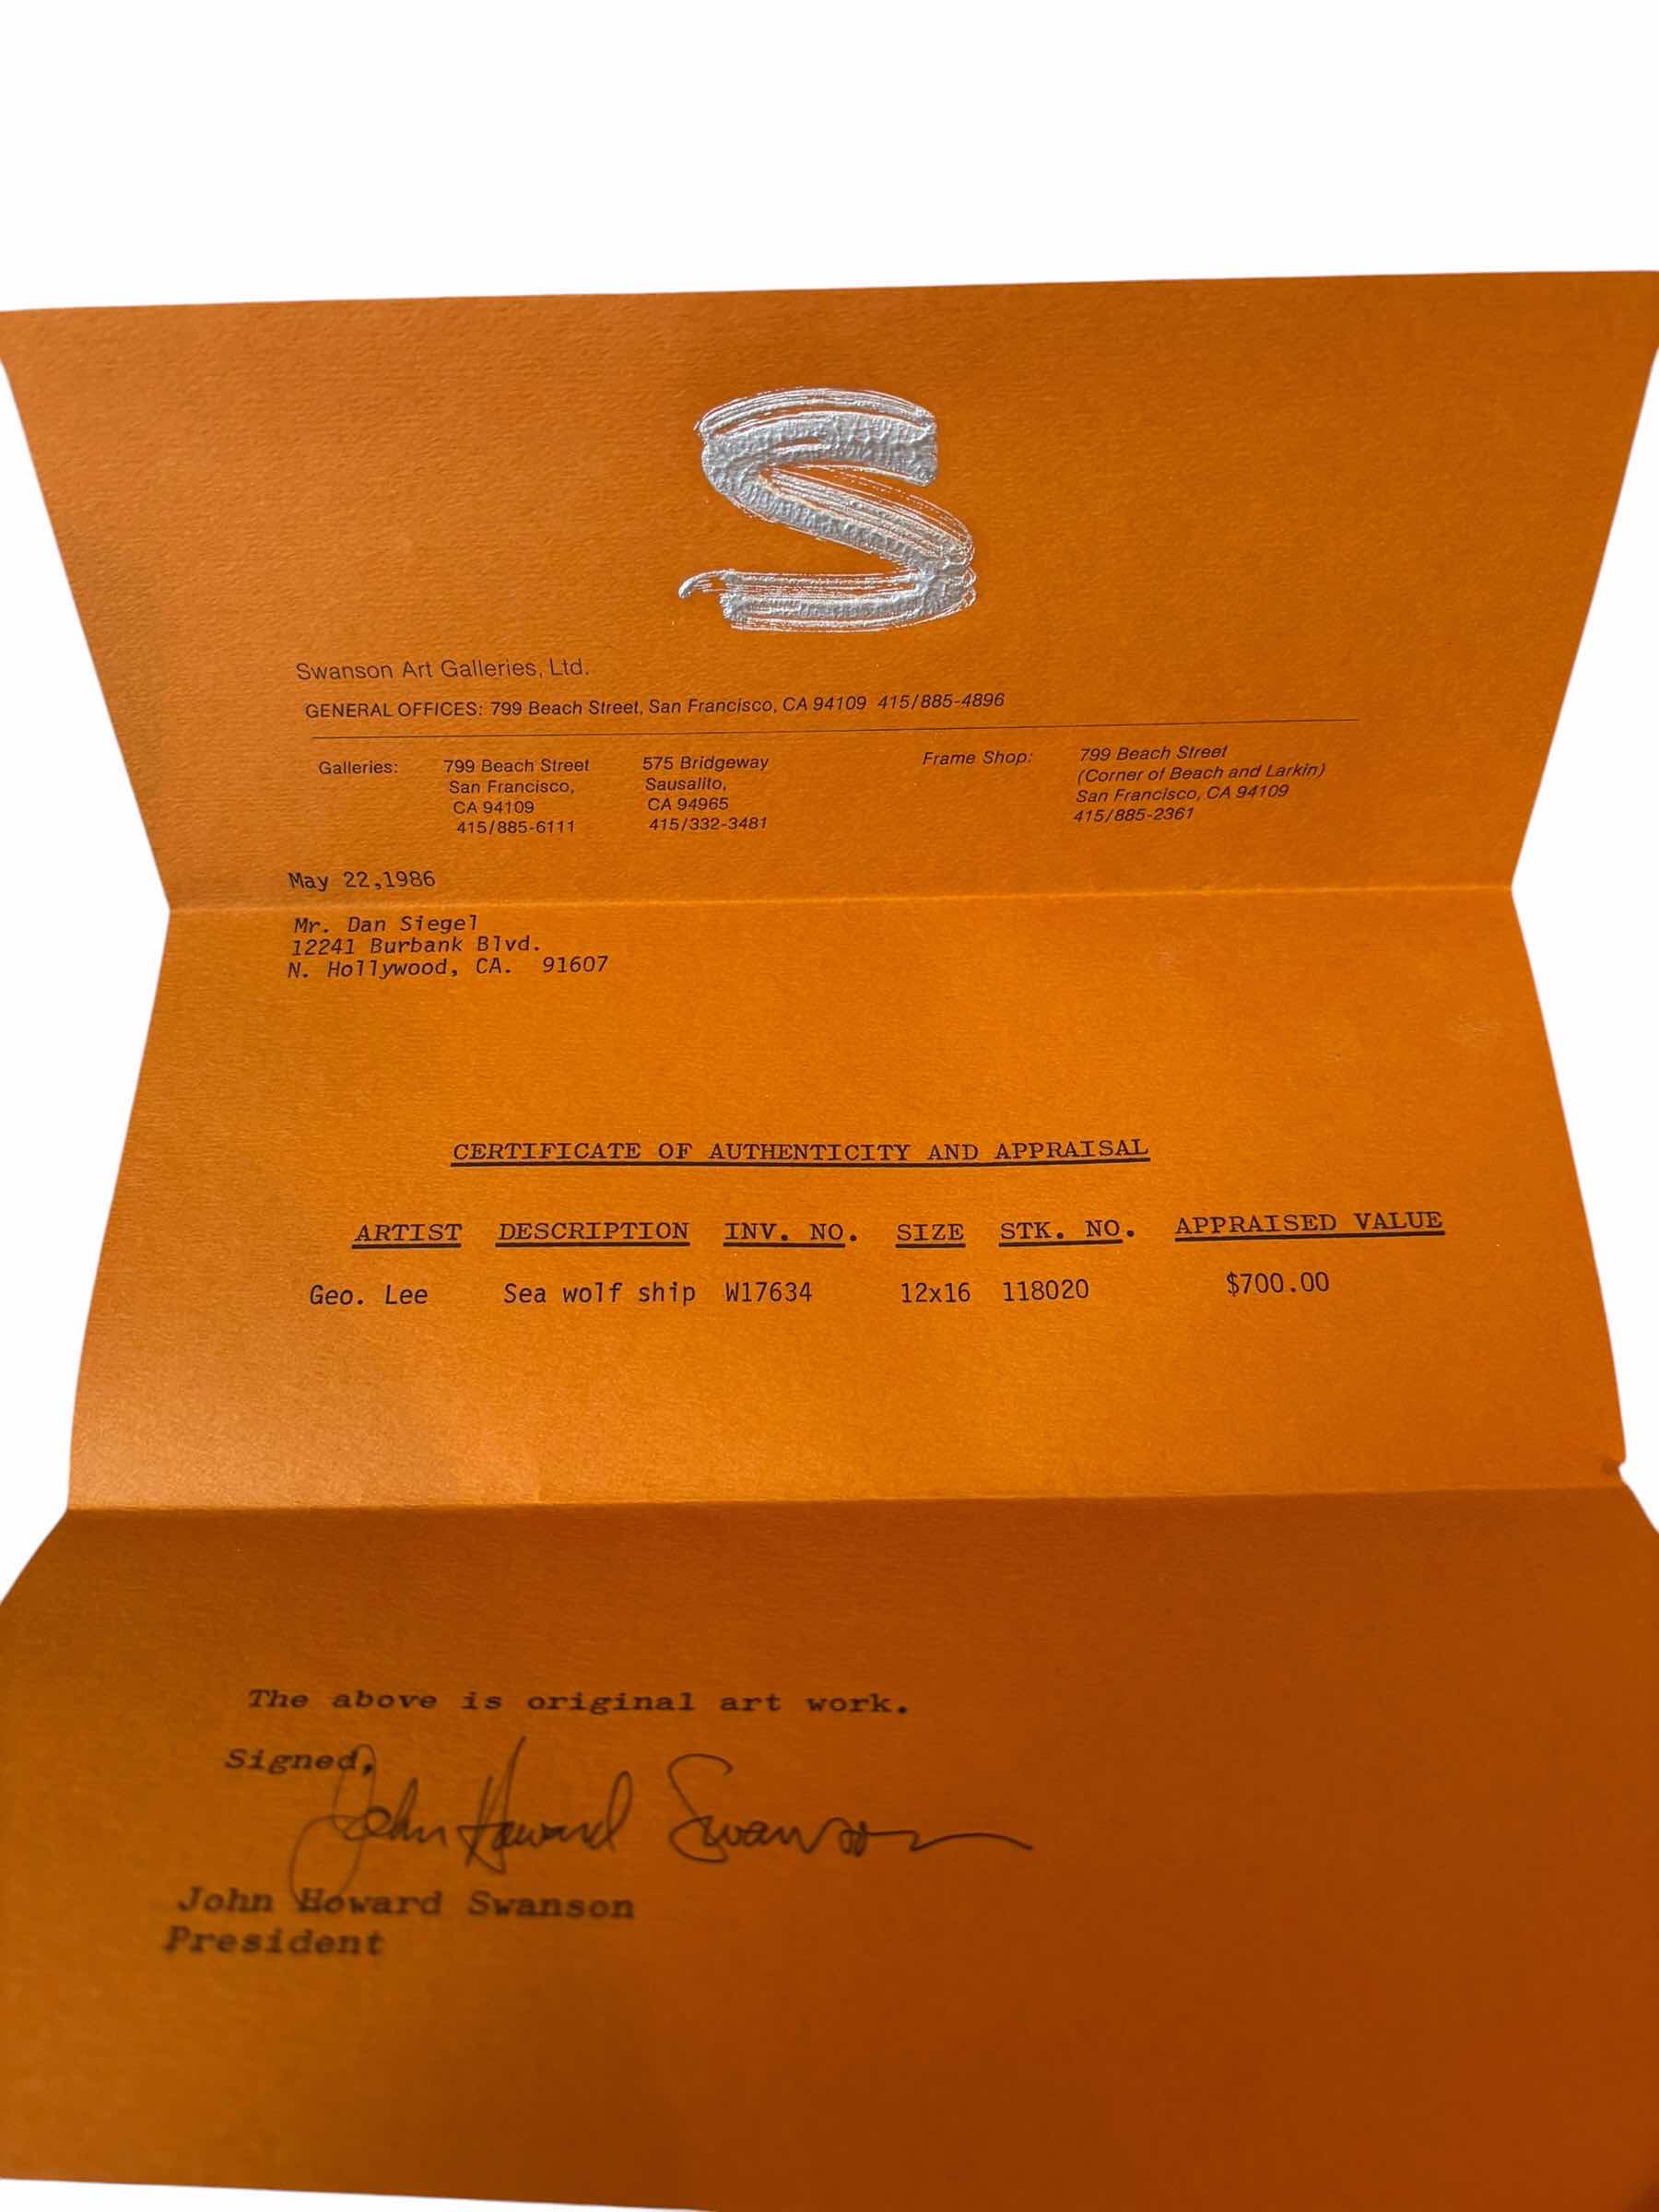 S
Swanson Art Galleries, Ltd.
GENERAL OFFICES: 799 Beach Street, San Francisco, CA 94109 415/885-4896
Galleries:
799 Beach Street
San Francisco,
CA 94109
415/885-6111
575 Bridgeway
Sausalito,
CA 94965
415/332-3481
Frame Shop:
799 Beach Street
(Corner of Beach and Larkin)
San Francisco, CA 94109
415/885-2361
May 22,1986
Mr. Dan Siegel
12241 Burbank Blvd.
N. Hollywood, CA. 91607
CERTIFICATE OF AUTHENTICITY AND APPRAISAL
ARTIST DESCRIPTION INV. NO. SIZE STK. NO. APPRAISED VALUE
Geo. Lee Sea wolf ship W17634 12x16 118020 $700.00
The above is original art work.
Signed,
John Howard Swanson
John Howard Swanson
President